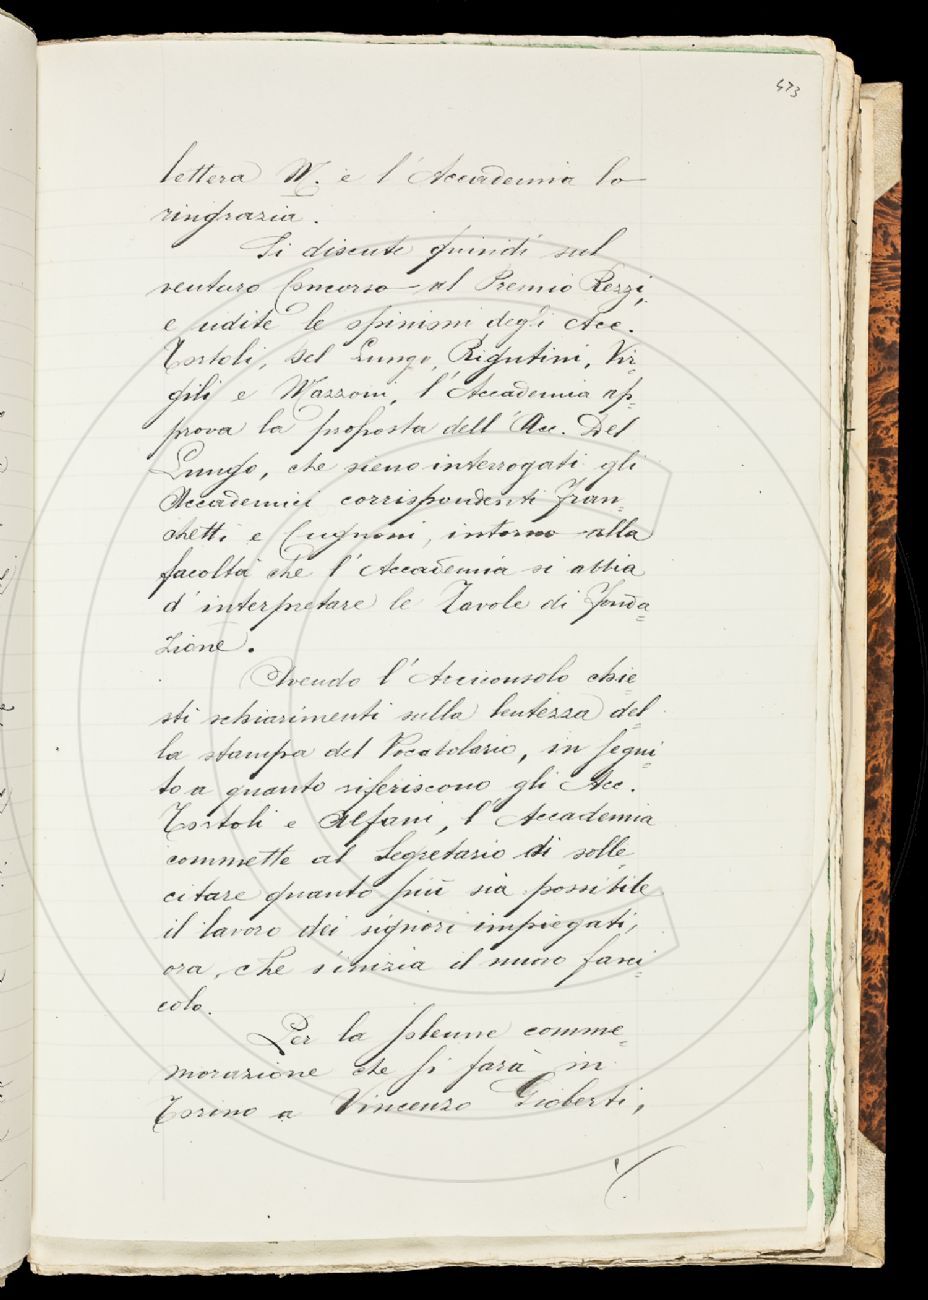 473
lettera M. e l'Accademia lo
ringrazia.
Si discute quindi sul
venturo Concorso al Premio Rezzi,
e udite le opinioni degli Acc.
Tortoli, Del Lungo, Rigutini, Vir=
gili e Mazzoni, l'Accademia ap=
prova la proposta dell'Acc. Del
Lungo, che sieno interrogati gli
Accademici corrispondenti Fran=
chetti e Cugnoni, intorno alla
facoltà che l'Accademia si abbia
d'interpretare le Tavole di fonda=
zione.
Avendo l'Arciconsolo chie=
sti schiarimenti sulla lentezza del=
la stampa del Vocabolario, in segui=
to a quanto riferiscono gli Acc.
Tortoli e Alfani, l'Accademia
commette al Segretario di solle=
citare quanto più sia possibile
il lavoro dei signori impiegati,
ora, che s'inizia il nuovo fasci=
colo.
Per la solenne comme=
morazione che si farà in
Torino a Vincenzo Gioberti,